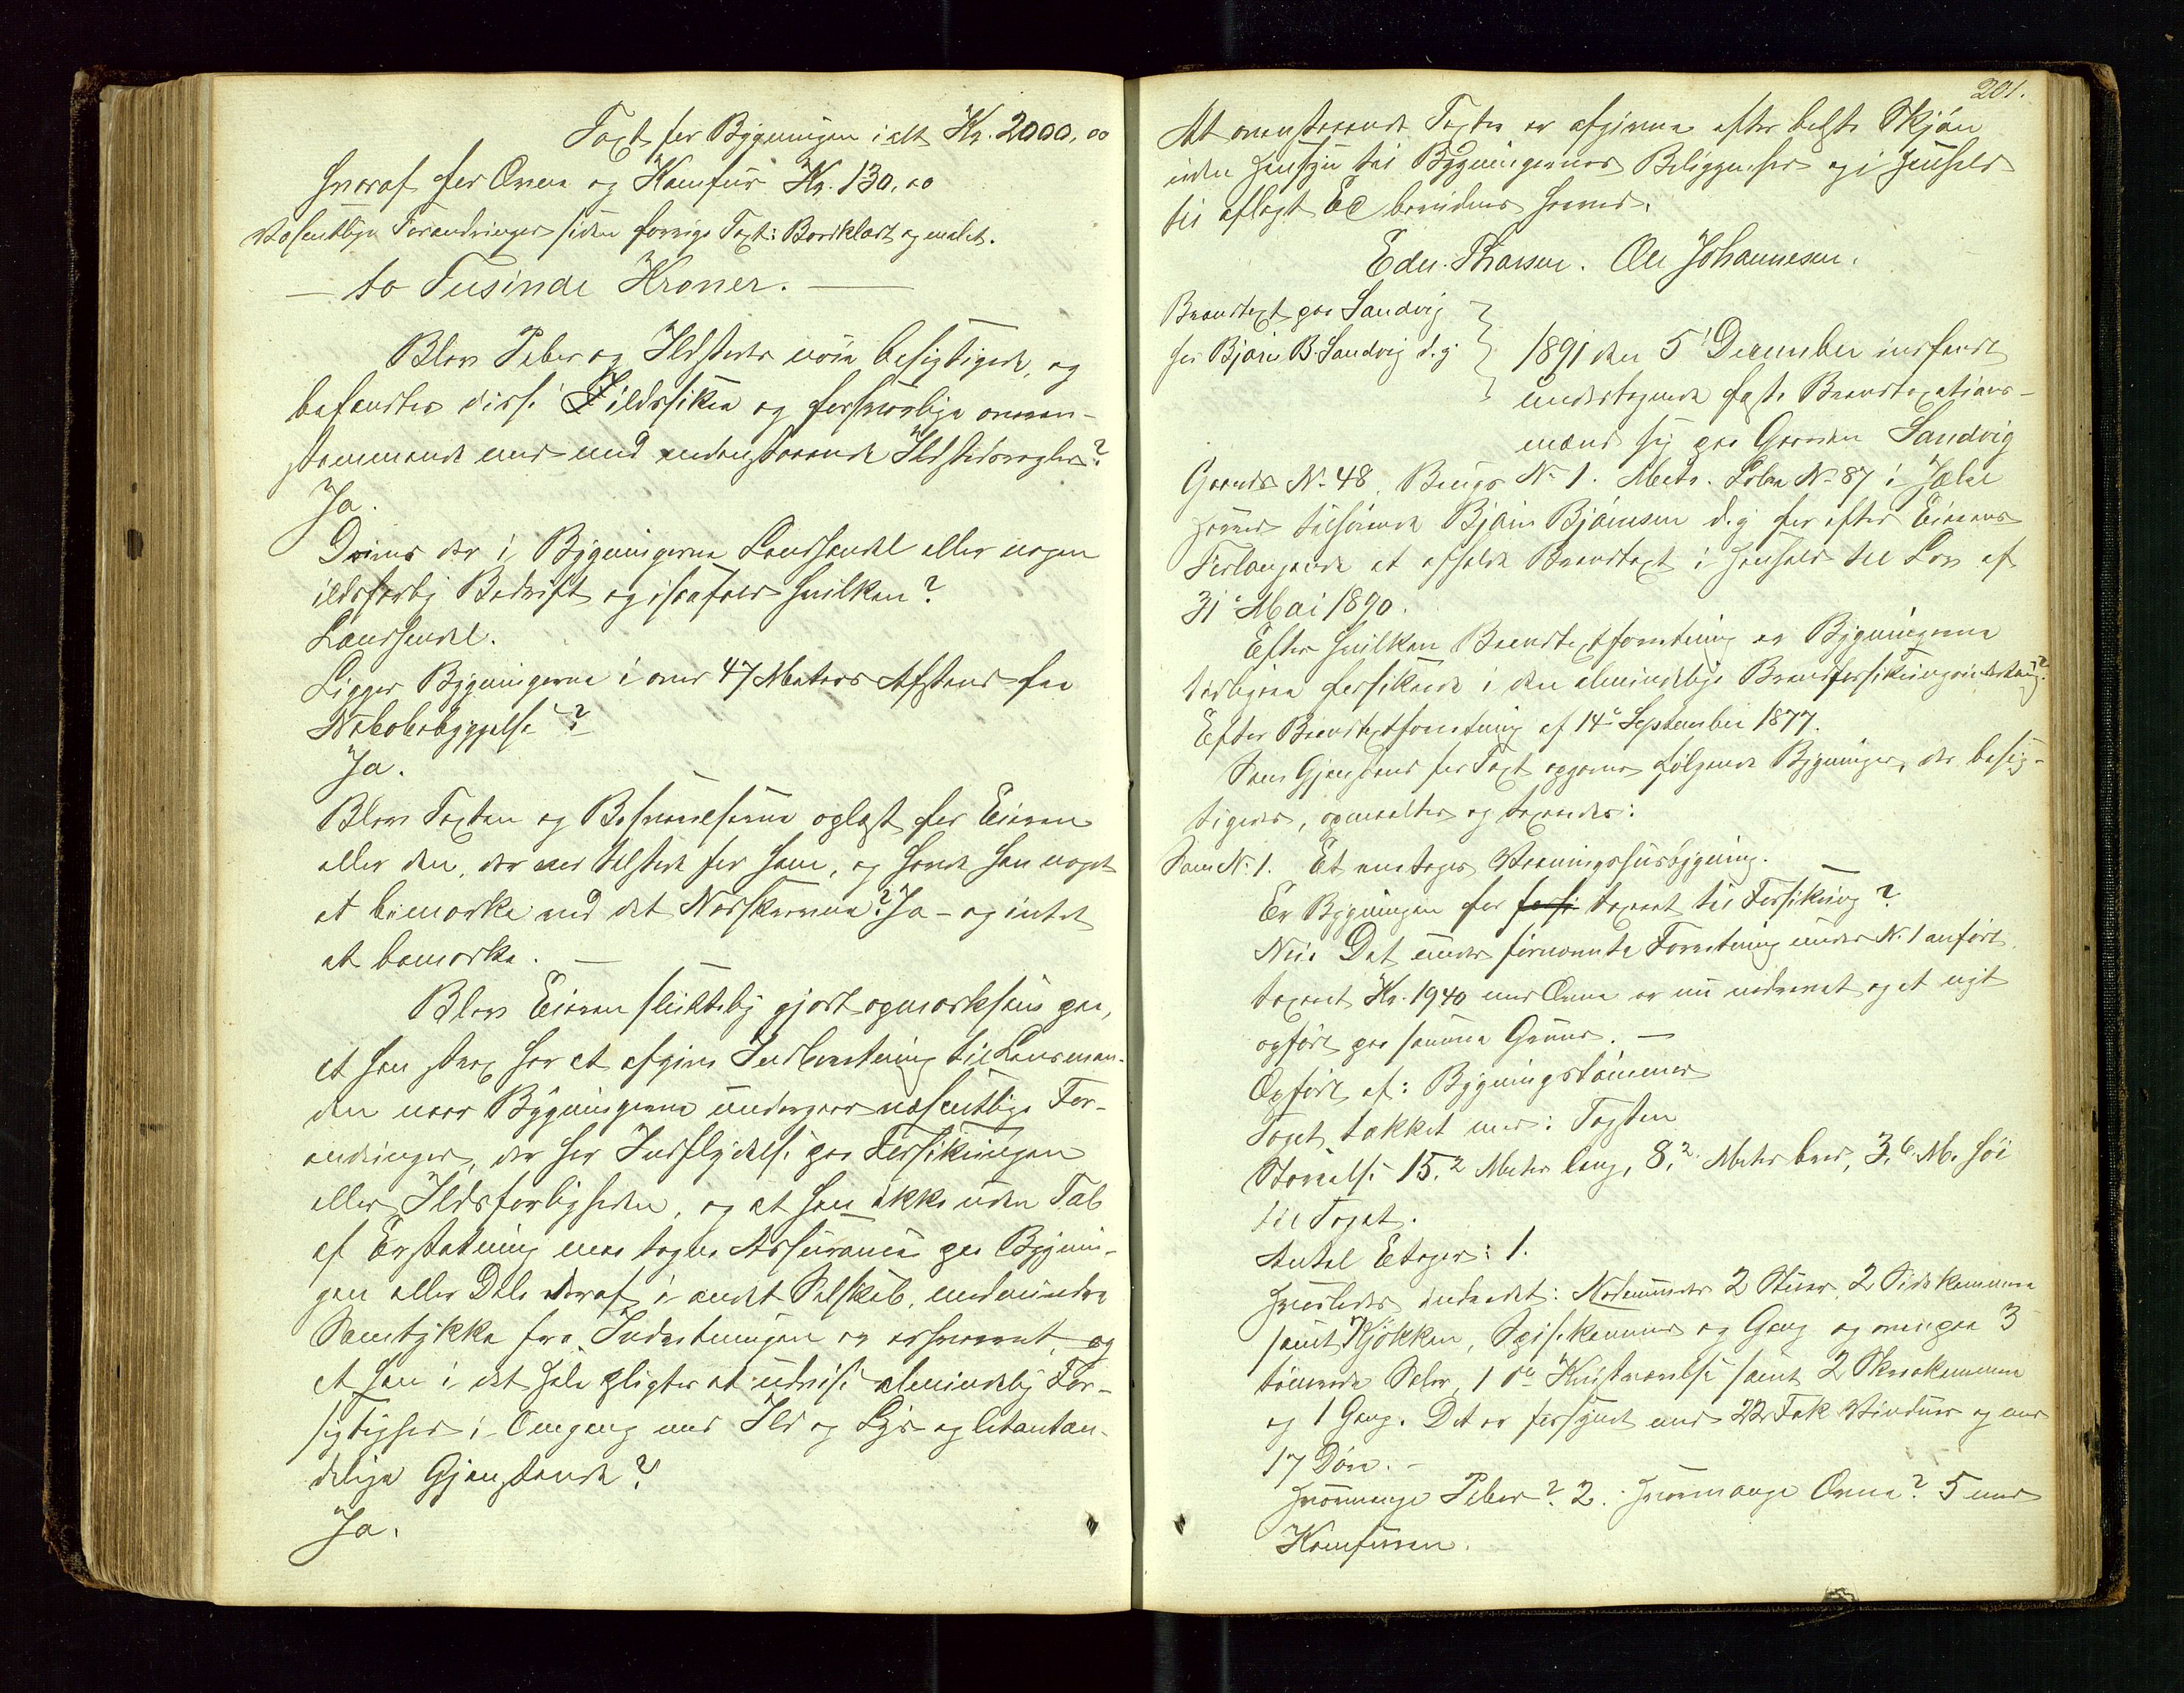 Taxt for Bygningen i alt Kr. 2000,00
hvoraf for Ovne og Komfur Kr. 130,00
Væsentlige Forandringer siden forrige Taxt: Bordklædt og malet.
— to Tusinde Kroner. —
Blev Piber og Ildsteder nøie besigtigede, og
befandtes disse ildssikre og forsvarlige overen-
stemmende med med nedenstaaende Ildstedsregler?
Ja.
Drives der i Bygningerne Landhandel eller nogen
ildsfarlig Bedrift og isaafald hvilken?
Landhandel.
Ligger Bygningerne i over 47 Meters Afstand fra
Nabobebyggelse?
Ja.
Blev Taxten og Besvarelserne oplæst for Eieren
eller den, der var tilstede for ham, og havde han noget
at bemærke ved det Nedskrevne? Ja – og intet
at bemærke. —
Blev Eieren skriftlig gjort opmærksom paa,
at han strax har at afgive Indberetning til Lensman-
den naar Bygningerne undergaar væsentlige For-
andringer, der har Indflydelse paa Forsikringen
eller Ildsfarligheden, og at han ikke uden Tab
af Erstatning maa tegne Assurance paa Bygnin-
gen eller Dele deraf i andet Selskab, medmindre
Samtykke fra Indretningen er erhvervet, og
at han i det Hele pligter at udvise almindelig For-
sigtighed i Omgang med Ild og Lys og letantæn-
delige Gjenstande?
Ja.
201.
At ovenstaaende Taxter er afgivne efter bedste Skjøn
uden Hensyn til Bygningernes Beliggenhed og i Henhold
til aflagt Ed bevidnes herved.
Edu. Thorsen. Ole Johannesen.
Brandtaxt paa Sandvig
for Bjørn B. Sandvig d.y.
1891 den 5 December indfandt
undertegnede faste Brandtaxations-
mænd sig paa Gaarden Sandvig
Gaards No 48. Brugs No 1. Matr. Løbe No 87 i
Herred tilhørende Bjørn Bjørnsen d.y. for efter Eierens
Forlangende at afholde Brandtaxt i Henhold til Lov af
31 Mai 1890.
Efter hvilken Brandtaxtforretning er Bygningerne
tidligere forsikrede i den almindelige Brandforsikringsindretning?
Efter Brandtaxtforretning af 14de September 1877.
Som Gjenstand for Taxt opgaves følgende Bygninger, der besig-
tigedes, opmaaltes og taxeredes:
Som No 1. Et en etages Vaaningshusbygning.
Er Bygningen før taxeret til Forsikring?
Nei. Det under førnævnte Forretning under No 1 anført
taxeret Kr. 1940 med Ovne er nu nedrevet og et nyt
opført paa samme Grund. —
Opført af: Bygningstømmer
Taget tækket med: Tagsten
Størrelse 15,2 Meter lang, 8,2 Meter bred, 3,6 M. høi
til Taget.
Antal Etager: 1.
Hvorledes indredet: Nedenunder 2 Stuer, 2 Sidekammere
samt Kjøkken, Spisekammer og Gang og ovenpaa 3
tømrede Saler, 1 do Kvistværelse samt 2 Skraakammere
og 1 Gang. Det er forsynet med 22 Fak Vinduer og med
17 Døre. –
Hvormange Piber? 2. Hvormange Ovne? 5 med
Komfuren.